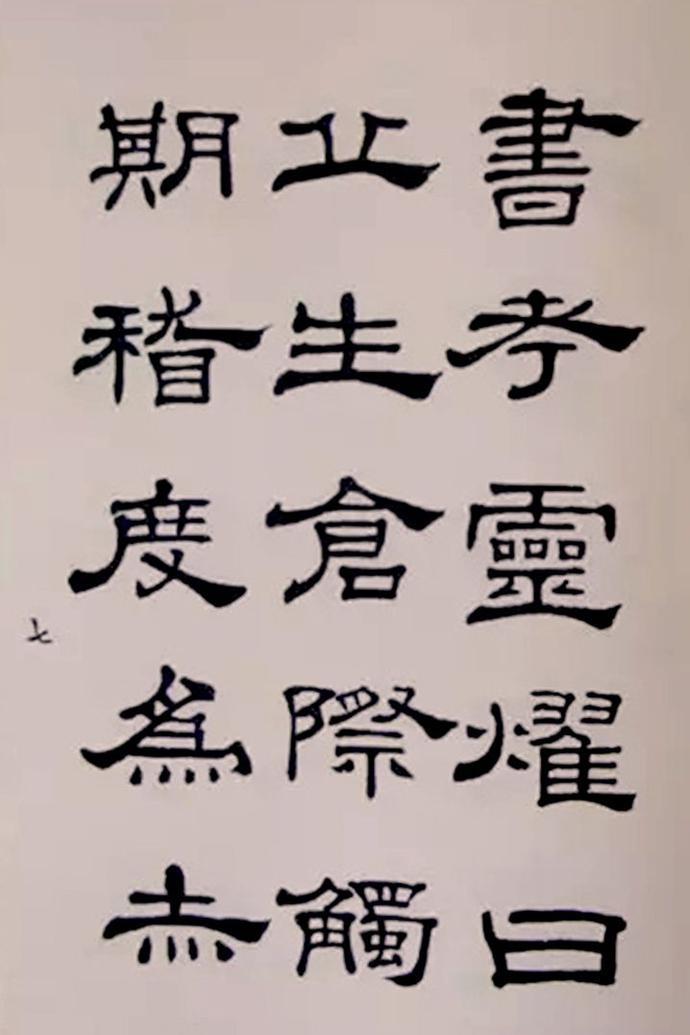 書考靈燿曰
丘生倉際觸
期稽度爲赤
七